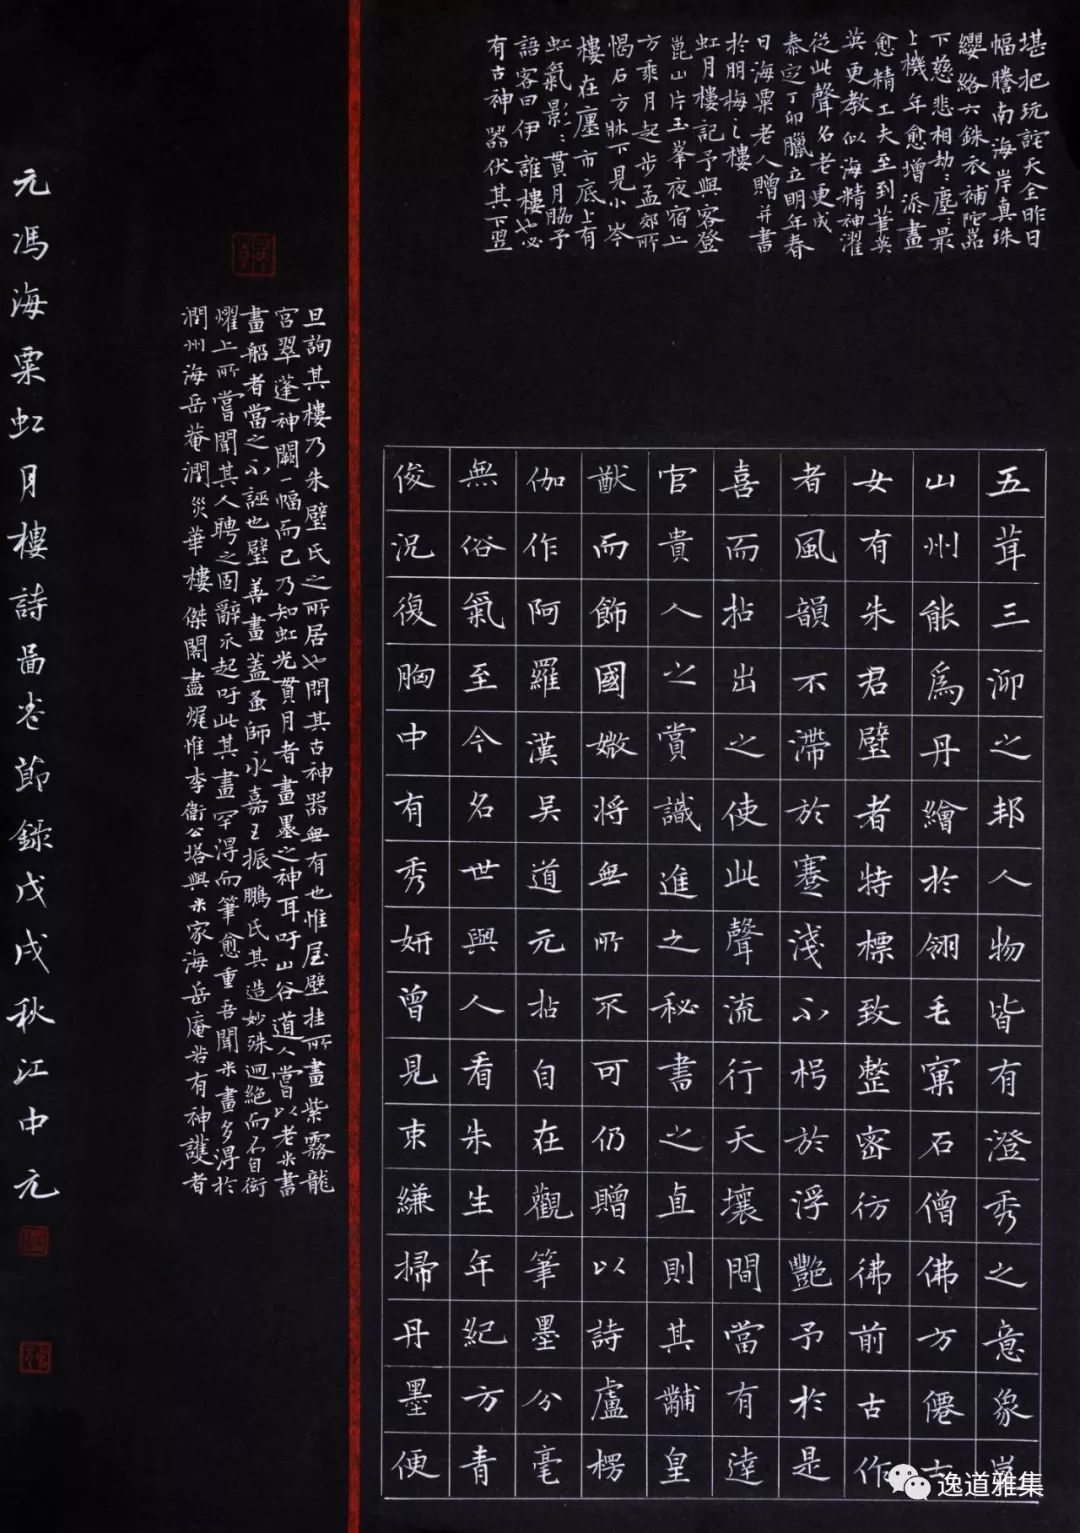 五茸三泖之邦人物皆有澄秀之意象豈
山州能爲丹繪於翎毛窠石僧佛方僊士
女有朱君璧者特標致整密彷彿前古作
者風韻不滯於蹇淺不枵於浮艷予於是
喜而拈出之使此聲流行天壤間當有達
官貴人之賞識進之秘書之直則其黼皇
猷而飾國媺將無所不可仍贈以詩盧楞
伽作阿羅漢吴道元拈自在觀筆墨分毫
無俗氣至今名世與人看朱生年紀方青
俊況復胸中有秀妍曾見束縑掃丹墨便
堪把玩詫天全昨日
幅騰南海岸真珠
纓絡六銖衣補陀嵓
下慈悲相劫〻塵最
上機年愈增添畫
愈精工夫至到華英
英更教似海精神濯
從此聲名老更成
泰定丁卯臘立明年春
日海粟老人贈并書
於朋梅之樓
虹月樓記予與客登
崑山片玉峯夜宿上
方乘月起步孟郊所
憩石方牀下見小岑
樓在廛市底上有
虹氣影〻貫月脇予
語客曰伊誰樓也必
有古神器伏其下翌
旦詢其樓乃朱璧氏之所居也問其古神器無有也惟屋壁挂所畫紫霧龍
宮翠蓬神闕一幅而已乃知虹光貫月者畫墨之神耳吁山谷道人嘗以老米書
畫船者當之不誣也璧善畫蓋蚤師永嘉王振鵬氏其造妙殊迥絕而不自衒
燿上所嘗聞其人聘之固辭不起吁此其畫罕得而筆愈重吾聞米畫多得於
潤州海岳菴潤災華樓傑閣盡煋惟李衛公塔與米家海岳庵若有神護者
元馮海粟虹月樓詩圖卷節錄戊戌秋江中元
逸道雅集